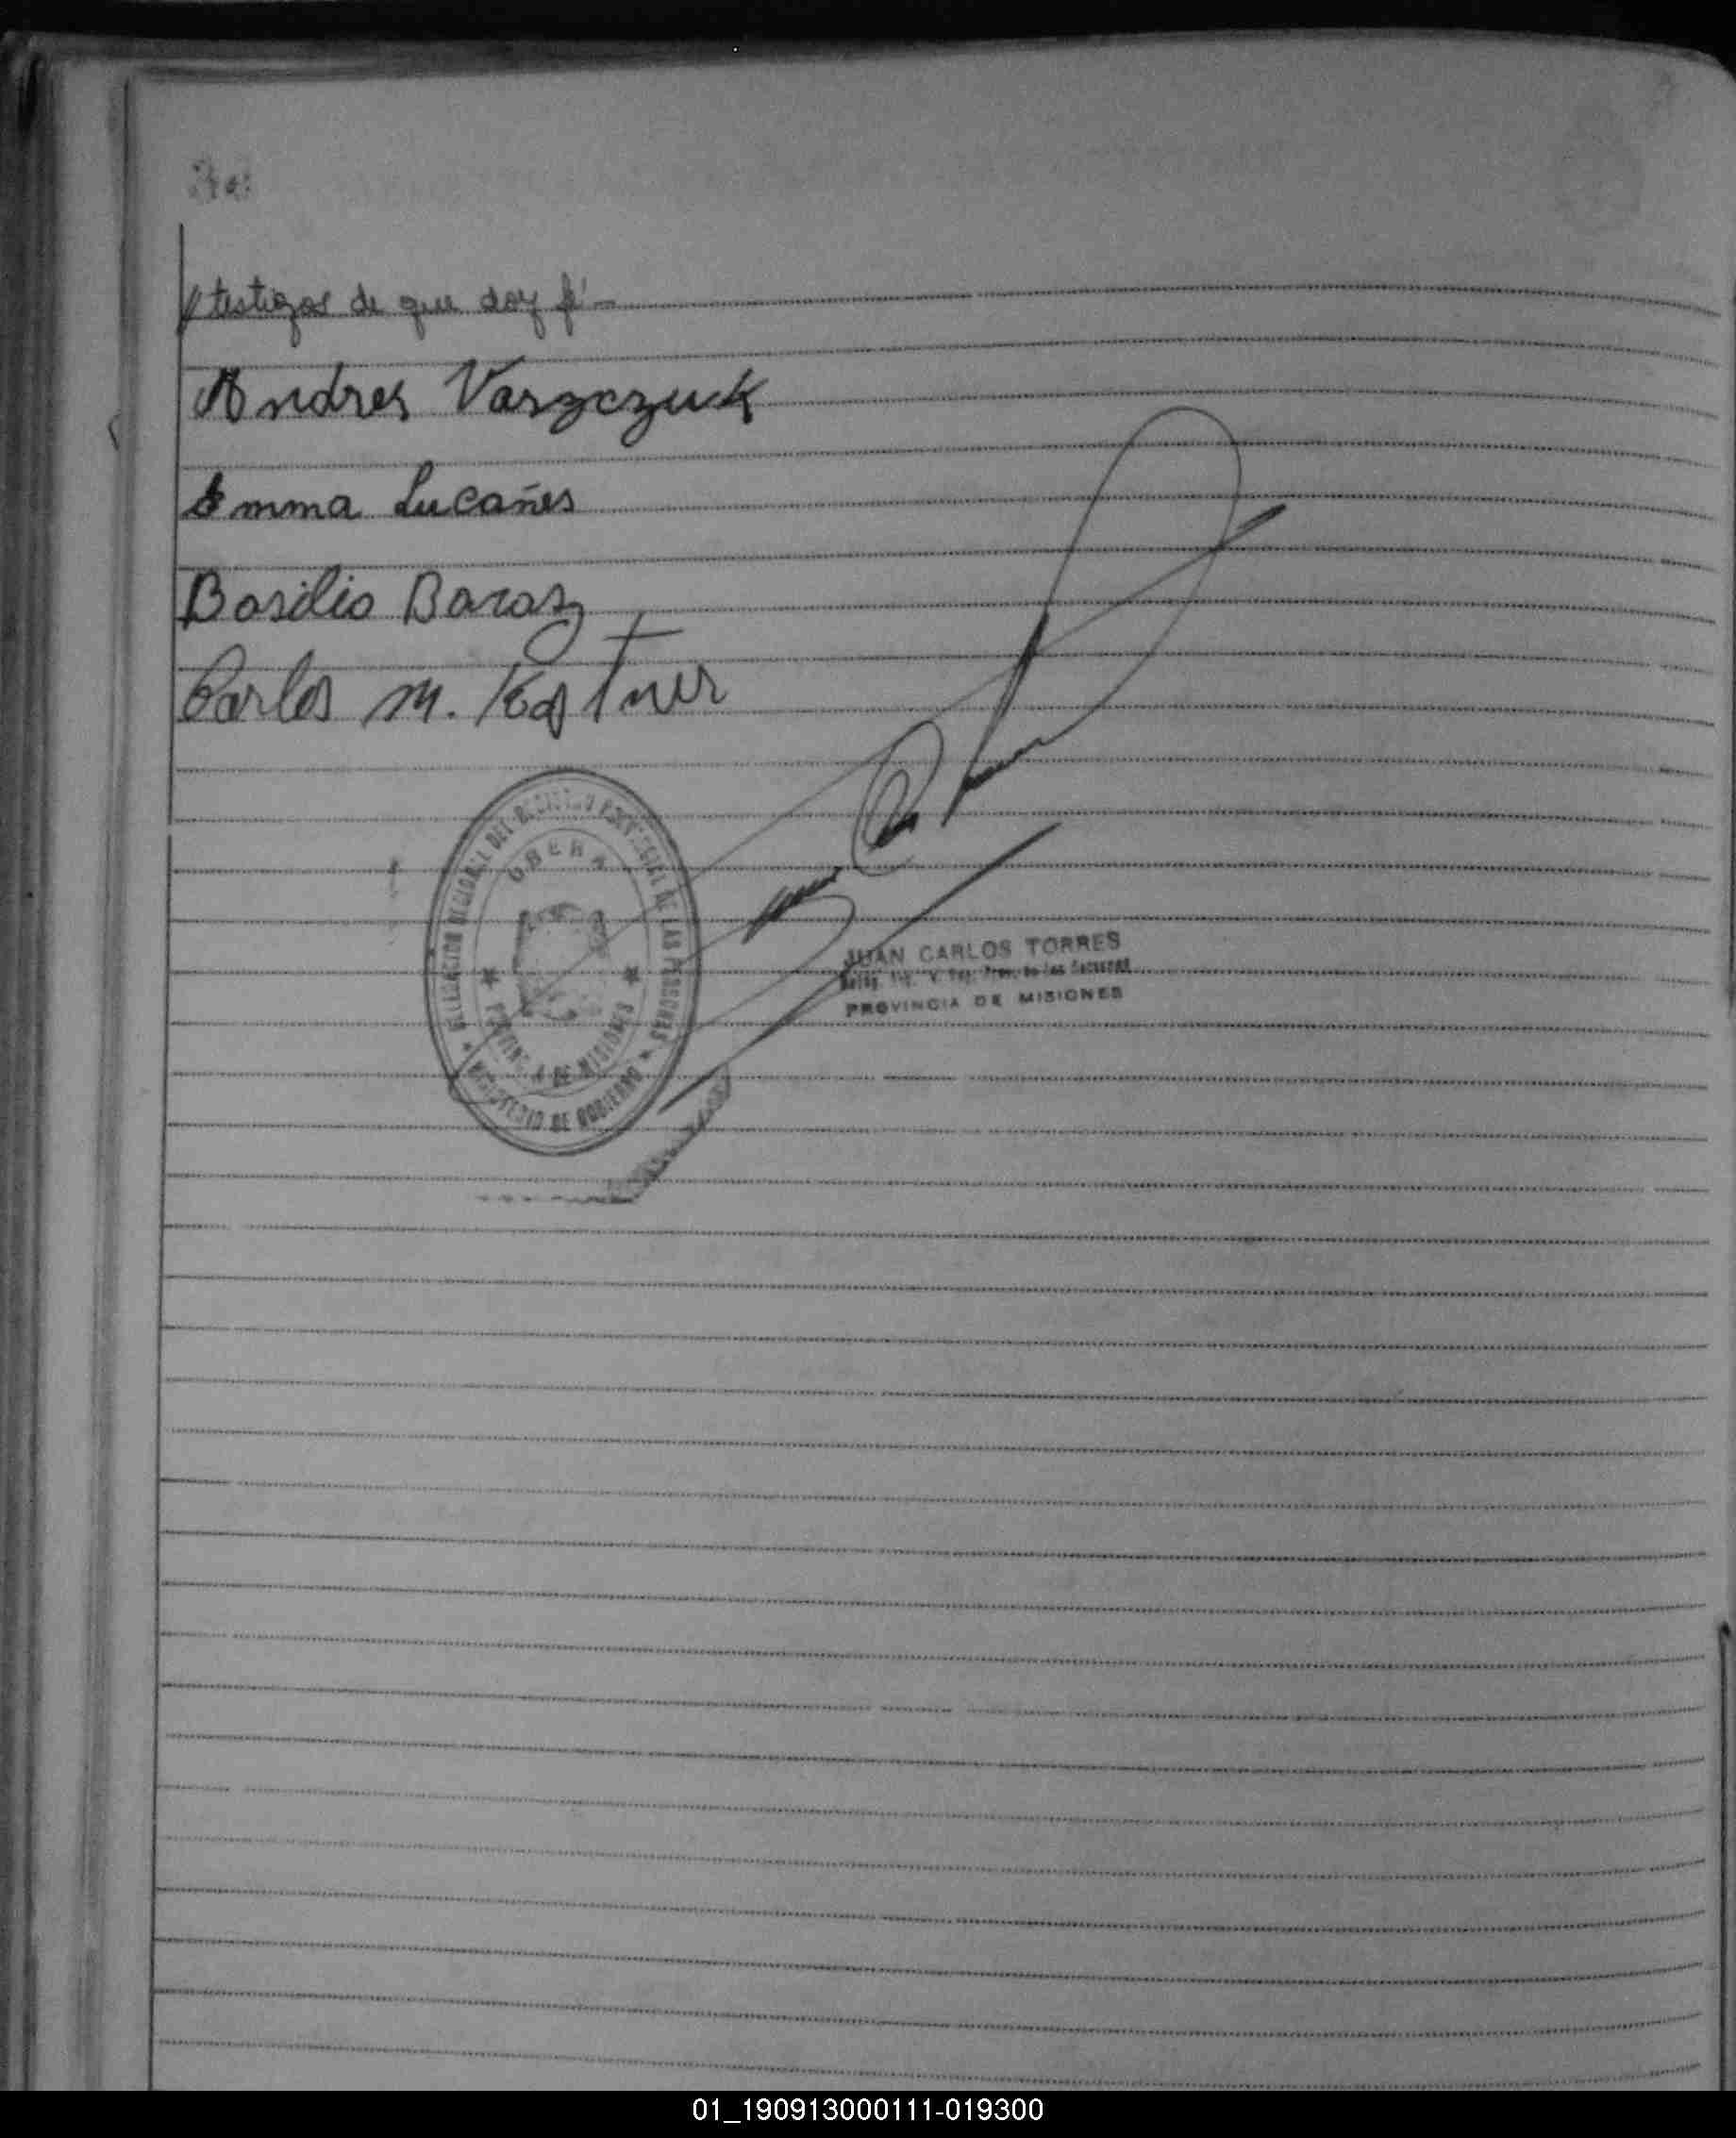 y testigos de que doy fé.-
Andres Vaszczuk
Emma Lucañes
Basilio Baraz
Carlos M. Kastner
DELEGACION REGIONAL DEL REGISTRO PROVINCIAL DE LAS PERSONAS
OBERA
PROVINCIA DE MISIONES
MINISTERIO DE GOBIERNO
JUAN CARLOS TORRES
Prov. de las Personas
PROVINCIA DE MISIONES
01_190913000111-019300